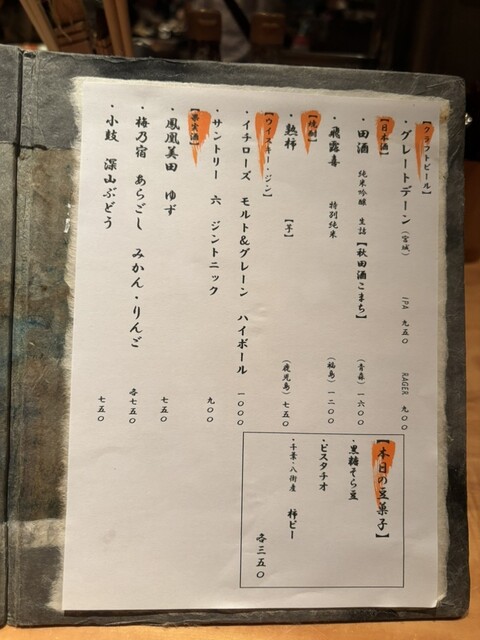 【クラフトビール】
・グレートデーン（宮城） IPA 九五〇 RAGER 九〇〇
【日本酒】
・田酒 純米吟醸 生詰【秋田酒こまち】（青森）一六〇〇
・飛露喜 特別純米（福島）一二〇〇
【焼酎】
・熟柿【芋】（鹿児島）七五〇
【ウイスキー・ジン】
・イチローズ モルト&グレーン ハイボール 一〇〇〇
・サントリー 六 ジントニック 九〇〇
【果実酒】
・鳳凰美田 ゆず 七五〇
・梅乃宿 あらごし みかん・りんご 各七五〇
・小鼓 深山ぶどう 七五〇
【本日の豆菓子】
・黒糖そら豆
・ピスタチオ
・千葉・八街産 柿ピー
各三五〇